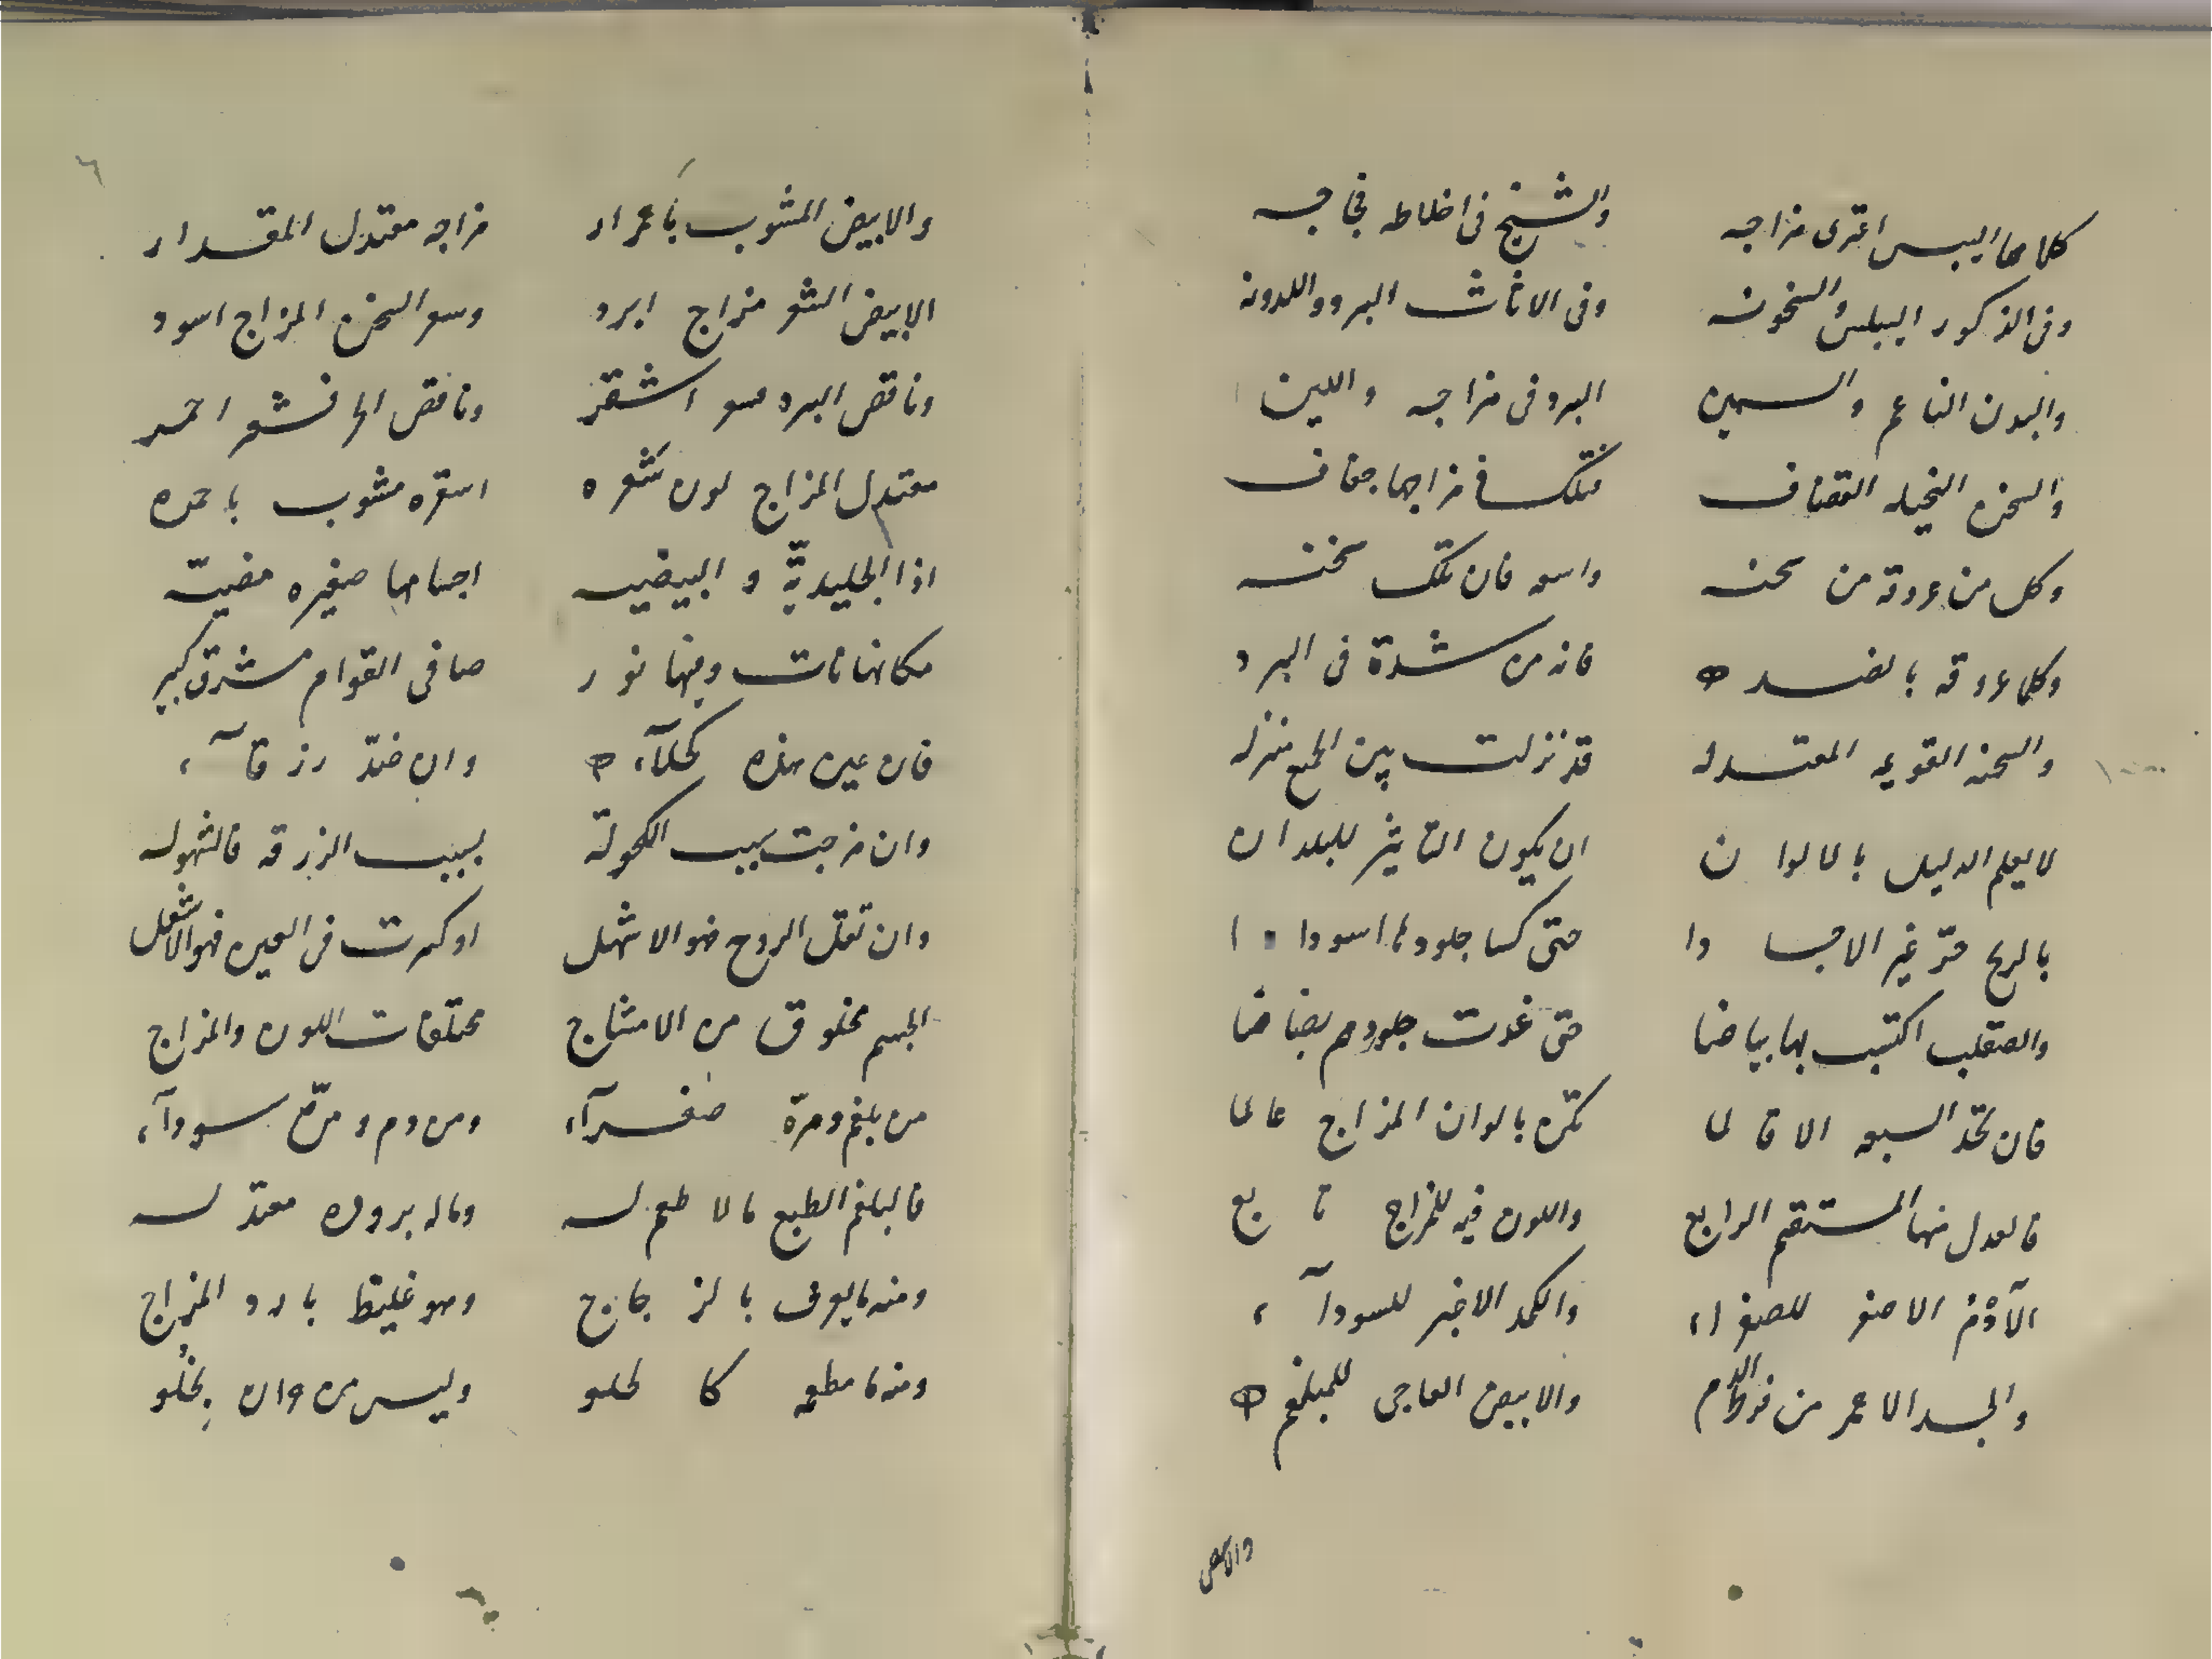 كلاهما اليبس اعترى مزاجه والشيخ فى اخلاطه فجاجه
وفى الذكور اليبس والسخونه وفى الاناث البرد واللدونه
والبدن الناعم والسمين البرد فى مزاجه واللين
والسحن النحيله القضاف فتلك فى مزاجها جفاف
وكل من عروقه من سحنه واسعه فان تلك سخنه
وكلما عروقه بالضد فانه من شدة فى البرد
والسحنه القويمه المعتدله قد نزلت بين الجميع منزله
لا يعلم الدليل بالالوان ان يكون التاثير للبلدان
بالزنج حرّ غير الاجسادا حتى كسا جلودها سوادا
والصقلب اكتسب بها بياضا حتى غدت جلودهم بضاضا
فان تحد السبعه الاقالما تكن بالوان المزاج عالما
فالعدل منها المستقيم الرابع واللون فيه للمزاج تابع
الآدم الاصفر للصفراء والكمد الاغبر للسودآء
والجسد الاحمر من فرط الدم والابيض العاجى للبلغم
والابيض
٦
والابيض المشوب باحمرار مزاجه معتدل المقدار
الابيض الشعر مزاج ابرد وسعر السخن المزاج اسود
وناقص البرد فسعر اشقر وناقص الحر فشعر احمر
معتدل المزاج لون شعره اسقره مشوب باحمره
اذا الجليديّة والبيضيه اجسامها صغيره مضيئه
مكانها نات وفيها نور صافى القوام مشرق كبير
فان عين هذه كحلآء وان ضدّ رزقآء
وان مزجت سبب الكحولة بسبب الزرقه فالشهوله
وان تقل الروح فهو الاشهل او كدرت فى العين فهو الاشعل
الجسم مخلوق من الامشاج مختلفات اللون والمزاج
من بلغم ومرّة صفرآء ومن دم ومرّة سودآء
فالبلغم الطبع ما لا طعم له وماله بروده معتدله
ومنه ما يعرف بالزجاج وهو غليظ بارد المزاج
ومنه ما مطعمه كالحلو وليس من وان يخلو